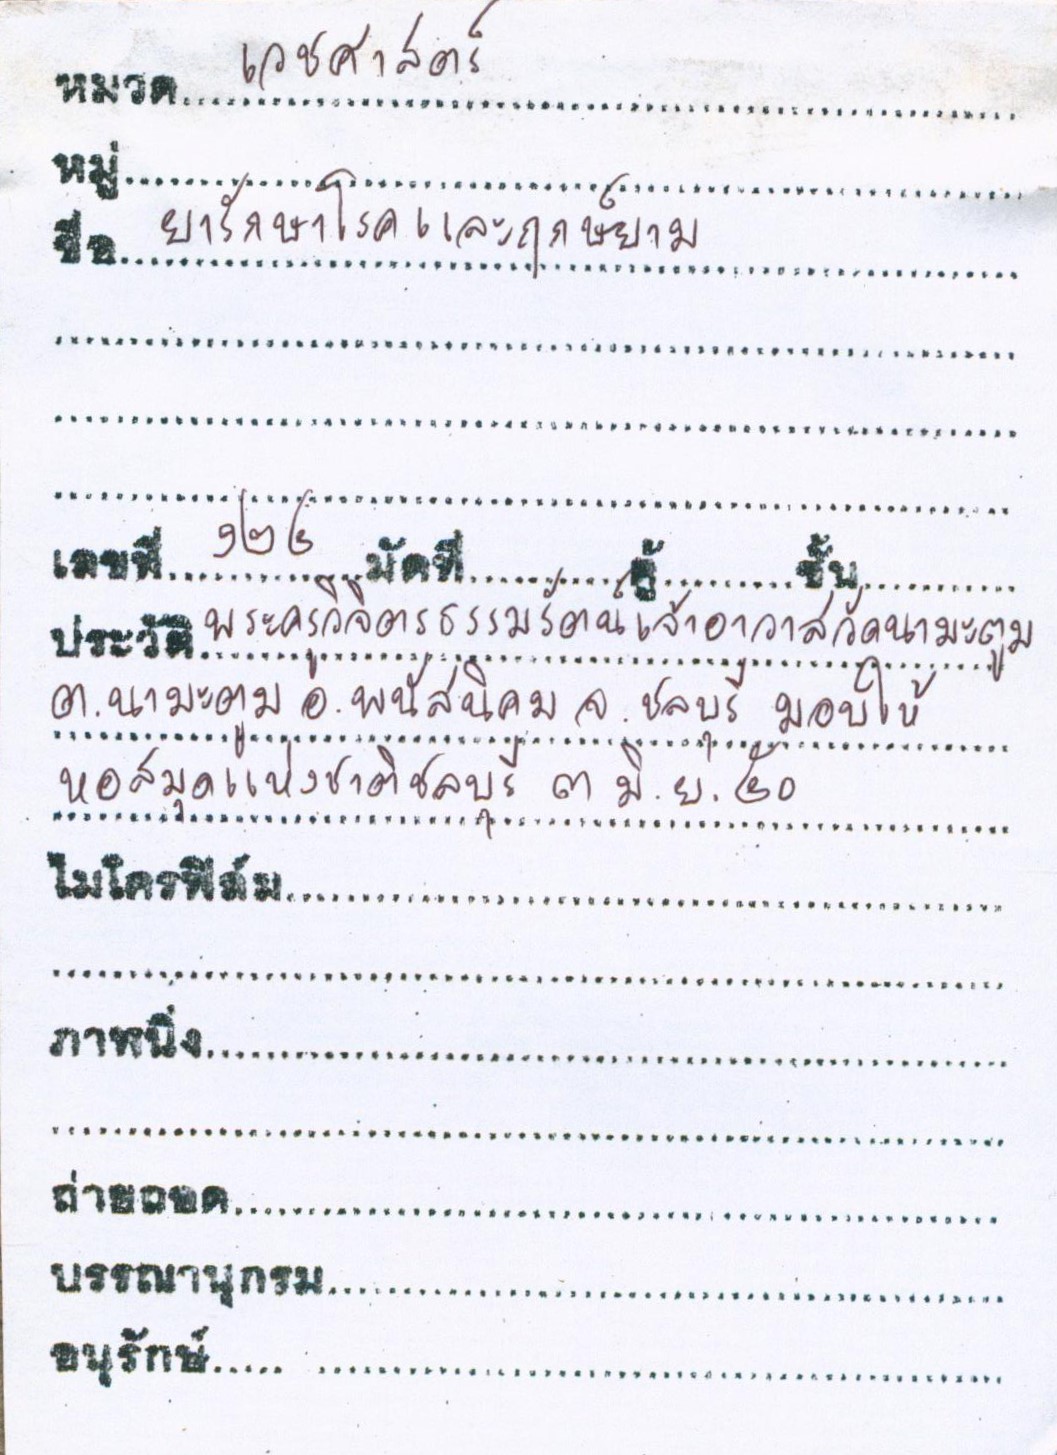 หมวด เวชศาสตร์
หมู่
ชื่อ ยารักษาโรคและฤกษ์ยาม
เลขที่ ๑๒๖ มัดที่ ตู้ ชั้น
ประวัติ พระครูวิจิตรธรรมรัตน์เจ้าอาวาสวัดนามะตูม
ต.นามะตูม อ.พนัสนิคม จ.ชลบุรี มอบให้
หอสมุดแห่งชาติชลบุรี ๓ มิ.ย.๕๐
ไมโครฟิล์ม
ภาพนิ่ง
ถ่ายถอด
บรรณานุกรม
อนุรักษ์